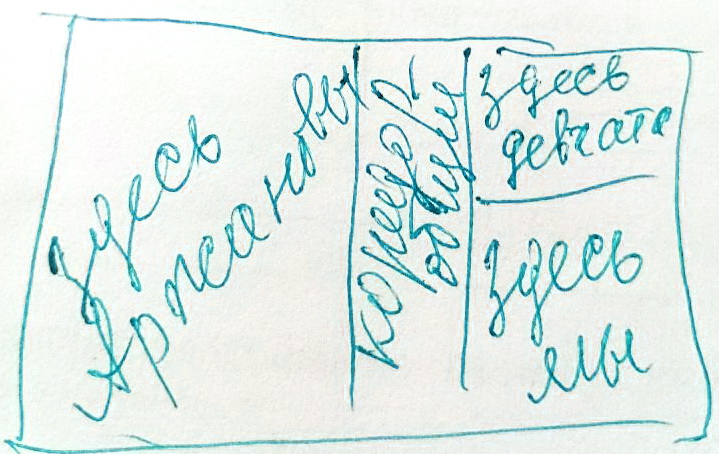 здесь
Аржановы
коридор
общий
здесь
девчата
здесь
мы